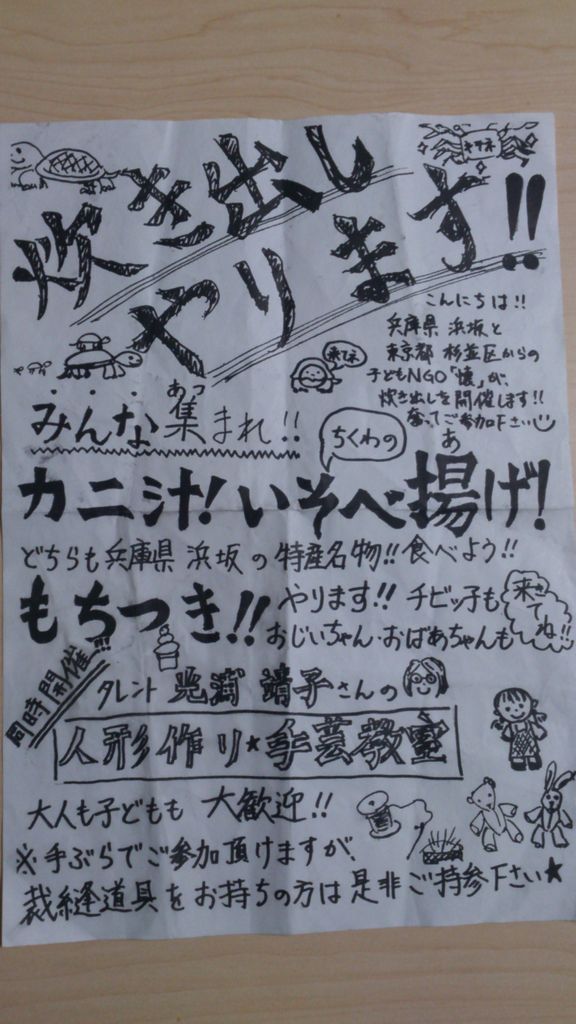 炊き出し
やります!!
キテネ
こんにちは!!
兵庫県 浜坂と
東京都 杉並区からの
子どもNGO「懐」が、
炊き出しを開催します!!
奮ってご参加下さい
来てネ
みんな集まれ!!
あつ
ちくわの
カニ汁!いそべ揚げ!
あ
どちらも兵庫県 浜坂の特産名物!!食べよう!!
もちつき!!
やります!! チビッ子も
おじいちゃん・おばあちゃんも
来きてね!!
同時開催!!!
タレント 光浦 靖子さんの
人形作り★手芸教室
大人も子どもも 大歓迎!!
※手ぶらでご参加頂けますが、
裁縫道具をお持ちの方は是非ご持参下さい★